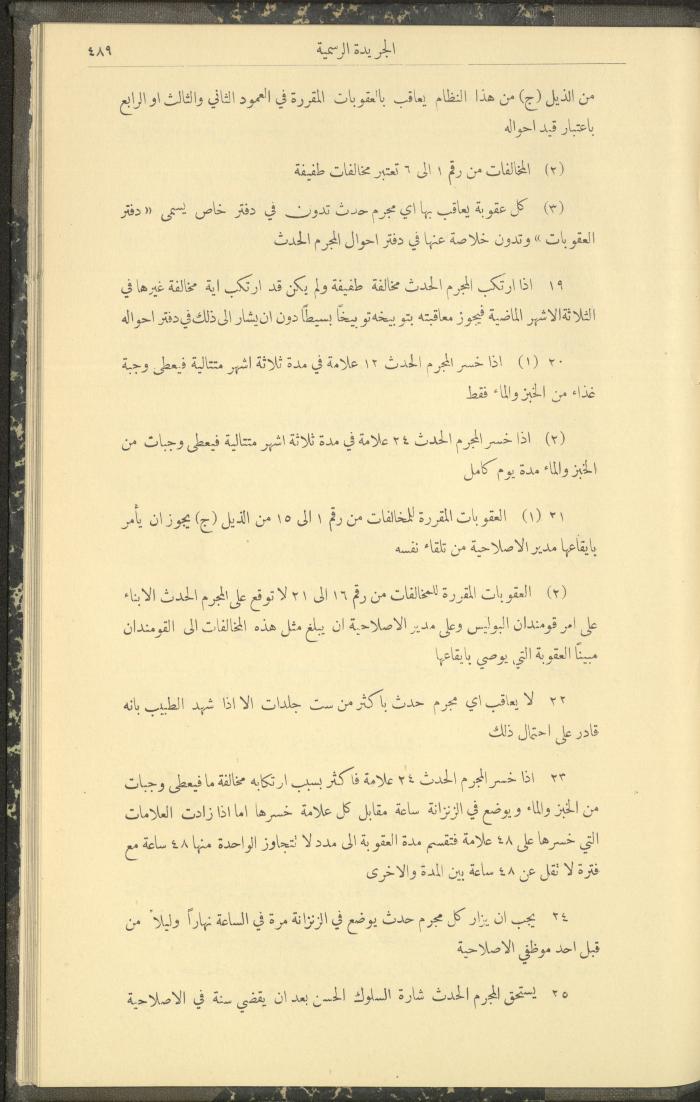 الجريدة الرسمية ٤٨٩
من الذيل (ج) من هذا النظام يعاقب بالعقوبات المقررة في العمود الثاني والثالث او الرابع
باعتبار قيد احواله
(٢) المخالفات من رقم ١ الى ٦ تعتبر مخالفات طفيفة
(٣) كل عقوبة يعاقب بها اي مجرم حدث تدون في دفتر خاص يسمى « دفتر
العقوبات » وتدون خلاصة عنها في دفتر احوال المجرم الحدث
١٩ اذا ارتكب المجرم الحدث مخالفة طفيفة ولم يكن قد ارتكب اية مخالفة غيرها في
الثلاثة الاشهر الماضية فيجوز معاقبته بتوبيخه توبيخًا بسيطًا دون ان يشار الى ذلك في دفتر احواله
٢٠ (١) اذا خسر المجرم الحدث ١٢ علامة في مدة ثلاثة اشهر متتالية فيعطى وجبة
غذاء من الخبز والماء فقط
(٢) اذا خسر المجرم الحدث ٢٤ علامة في مدة ثلاثة اشهر متتالية فيعطى وجبات من
الخبز والماء مدة يوم كامل
٢١ (١) العقوبات المقررة للمخالفات من رقم ١ الى ١٥ من الذيل (ج) يجوز ان يأمر
بايقاعها مدير الاصلاحية من تلقاء نفسه
(٢) العقوبات المقررة للمخالفات من رقم ١٦ الى ٢١ لا توقع على المجرم الحدث الا بناء
على امر قومندان البوليس وعلى مدير الاصلاحية ان يبلغ مثل هذه المخالفات الى القومندان
مبينًا العقوبة التي يوصي بايقاعها
٢٢ لا يعاقب اي مجرم حدث باكثر من ست جلدات الا اذا شهد الطبيب بانه
قادر على احتمال ذلك
٢٣ اذا خسر المجرم الحدث ٢٤ علامة فاكثر بسبب ارتكابه مخالفة ما فيعطى وجبات
من الخبز والماء ويوضع في الزنزانة ساعة مقابل كل علامة خسرها اما اذا زادت العلامات
التي خسرها على ٤٨ علامة فتقسم مدة العقوبة الى مدد لا تتجاوز الواحدة منها ٤٨ ساعة مع
فترة لا تقل عن ٤٨ ساعة بين المدة والاخرى
٢٤ يجب ان يزار كل مجرم حدث يوضع في الزنزانة مرة في الساعة نهاراً وليلاً من
قبل احد موظفي الاصلاحية
٢٥ يستحق المجرم الحدث شارة السلوك الحسن بعد ان يقضي سنة في الاصلاحية